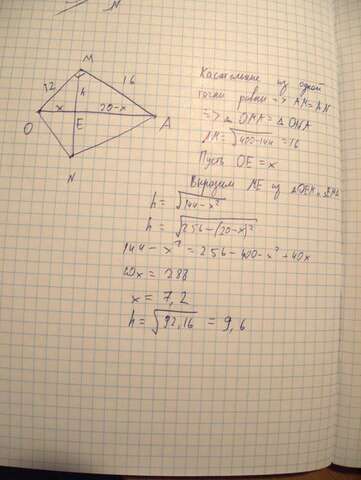 N
M
12
16
h
x
20-x
O
E
A
N
Касательные из одной
точки равны => AM = AN
=> △ OMA = △ ONA
AM = √400-144 = 16
Пусть OE = x
Выразим ME из △OEM и △EMA
h = √144 - x²
h = √256 - (20-x)²
144 - x² = 256 - 400 - x² + 40x
40x = 288
x = 7,2
h = √92,16 = 9,6